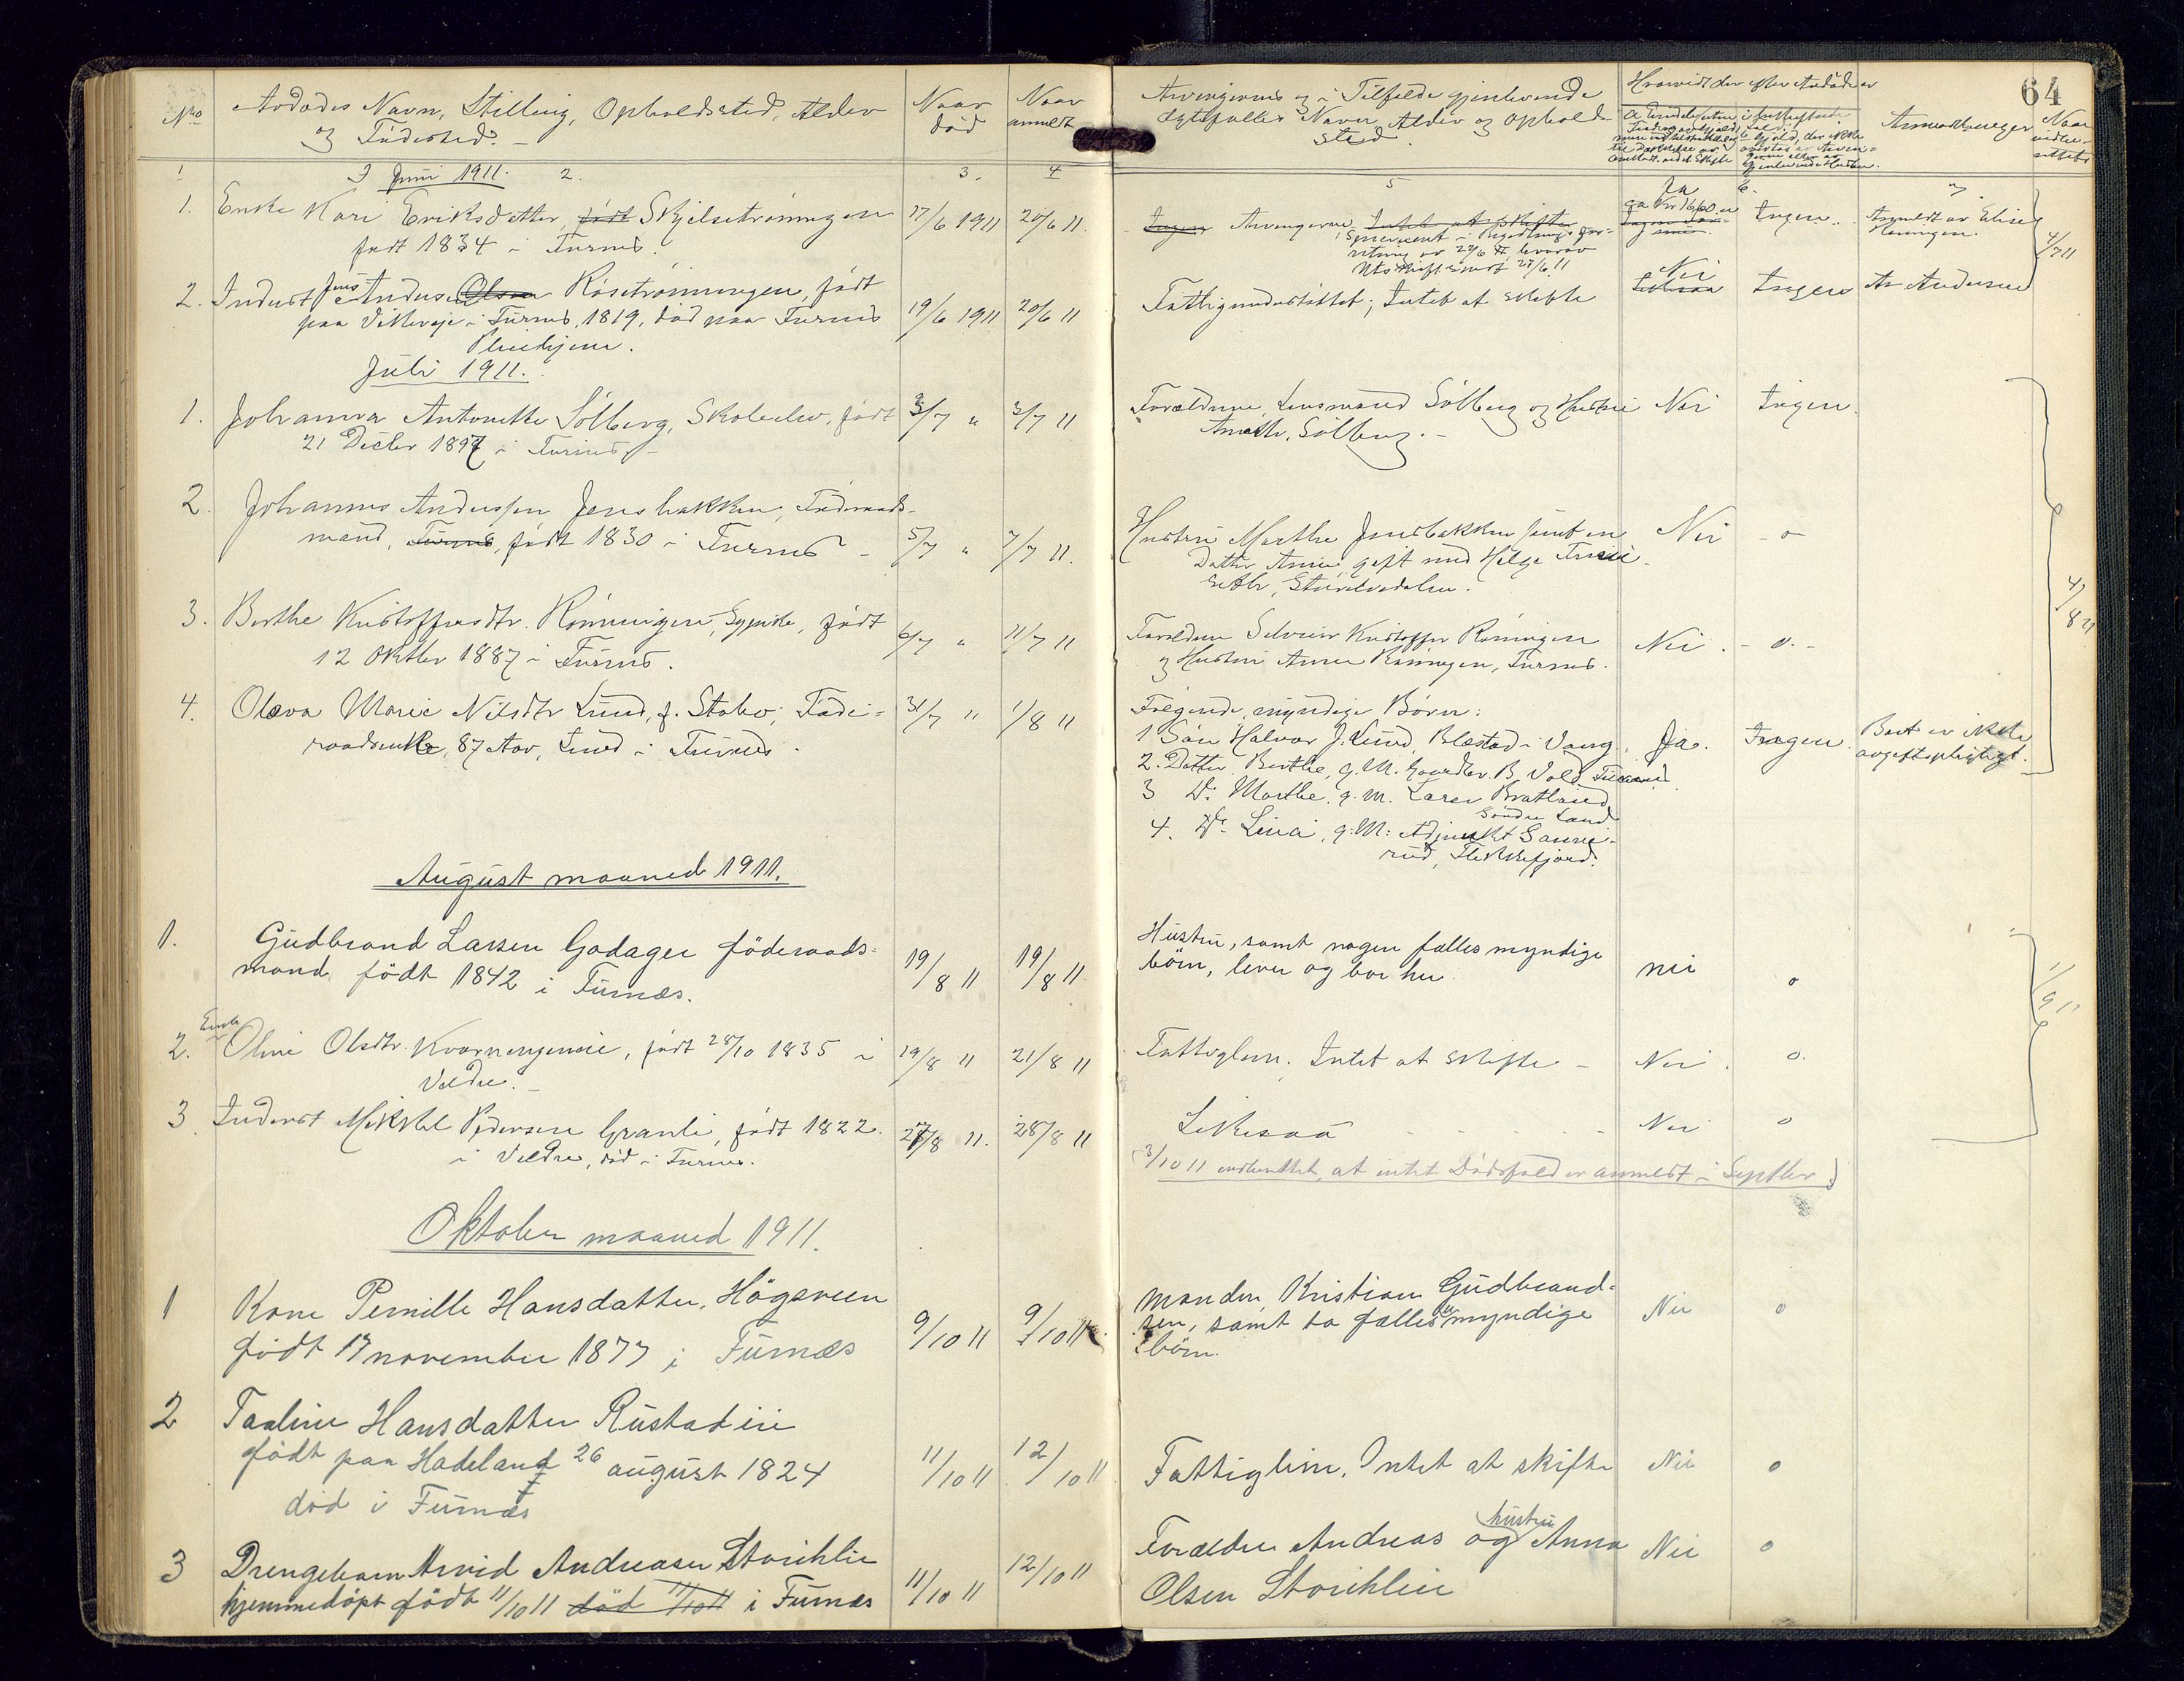 64
No
Avdødes Navn, Stilling, Opholdssted, Alder
og Fødested.
Naar
død
Naar
anmeldt
Arvingernes og i Tilfælde gjenlevende
Ægtefælles Navn, Alder og Opholds-
sted.
Hvorvidt der efter Avdøde er
1
2.
3.
4
5
6.
7
I Juni 1911.
1. Enke Kari Eriksdatter, født Skjelsetrønningen
født 1834 i Furnes.
17/6 1911
20/6 11.
Ingen Arvingerne
Ja
Ingen
Anmeldt av Elise
Rønningen.
4/7 11
2. Inderst Jens Andersen Olsen Røsetrønningen, født
paa Vitleveje i Furnes, 1819, død paa Furnes
Pleiehjem.
19/6 1911
20/6 11
Fattigunderstøttet; Intet at skifte
Nei
Ingen
An Andersen
Juli 1911.
1. Johanna Antonette Sølberg, Skoleelev, født
21 Decbr 1897 i Furnes
3/7 "
3/7 11
Forældrene, Lensmand Sølberg og Hustru
Anette Sølberg.
Nei
Ingen.
2. Johannes Anderssen Jensbakken, Føderaads-
mand, Furnes, født 1830 i Furnes
5/7 "
7/7 11.
Hustru Marthe Jensbakken samt en
Datter Anne gift med Helge
Stenelvedalen.
Nei
- o -
3. Berthe Kristoffersdtr. Rønningen, Sypike, født
12 Oktbr 1887 i Furnes.
6/7 "
11/7 11
Forældrene Selveier Kristoffer Rønningen
og Hustru Anne Rønningen, Furnes.
Nei.
- o. -
4/8 11
4. Oleva Marie Nilsdtr Lund, f. Stabo, Føde-
raadsenke, 87 Aar, Lund i Furnes.
31/7 "
1/8 11
Følgende myndige Børn:
1 Søn Halvor J. Lund, Blæstad i Vang.
2. Datter Berthe, g. M. Gaardbr. B. Vold Furnes.
3 Do Marthe, g. m. Lærer Bratland
Søndre Land
4. Do Lina, g. M. Adjunkt Saxe-
rud, Flekkefjord.
Ja.
Ingen
Boet er ikke
avgiftspligtigt.
August maaned 1911.
1. Gudbrand Larsen Godager föderaads-
mand, födt 1842 i Furnæs.
19/8 11
19/8 11
Hustru, samt nogen fælles myndige
börn, lever og bor her
nei
o
2. Enke Oline Olsdtr. Kvarnengeneie, født 28/10 1835 i
Veldre.
19/8 11
21/8 11
Fattiglem. Intet at skifte -
Nei.
o.
1/9 11
3 Inderst Mikkel Pedersen Granli, født 1822
i Veldre, død i Furnes.
27/8 11.
28/8 11
Likesaa
Nei
o
(3/10 11 indberettet, at intet Dødsfald er anmeldt i Septbr)
Oktober maaned 1911.
1 Kone Pernille Hansdatter, Högsveen
födt 17 november 1877 i Furnæs
9/10 11
9/10 11.
Manden Kristian Gudbrand-
sen, samt to fælles umyndige
börn.
Nei
o
2 Taaline Hansdatter Rustadeie
födt paa Hadeland 26 august 1824
död i Furnæs
11/10 11
12/10 11
Fattiglem. Intet at skifte
Nei
o
3 Drengebarn Arvid Andreasen Storihlie
hjemmedöpt födt 11/10 11 död 11/10 11 i Furnæs
11/10 11
12/10 11
Forældre Andreas og hustru Anna
Olsen Storihlie
Nei
o